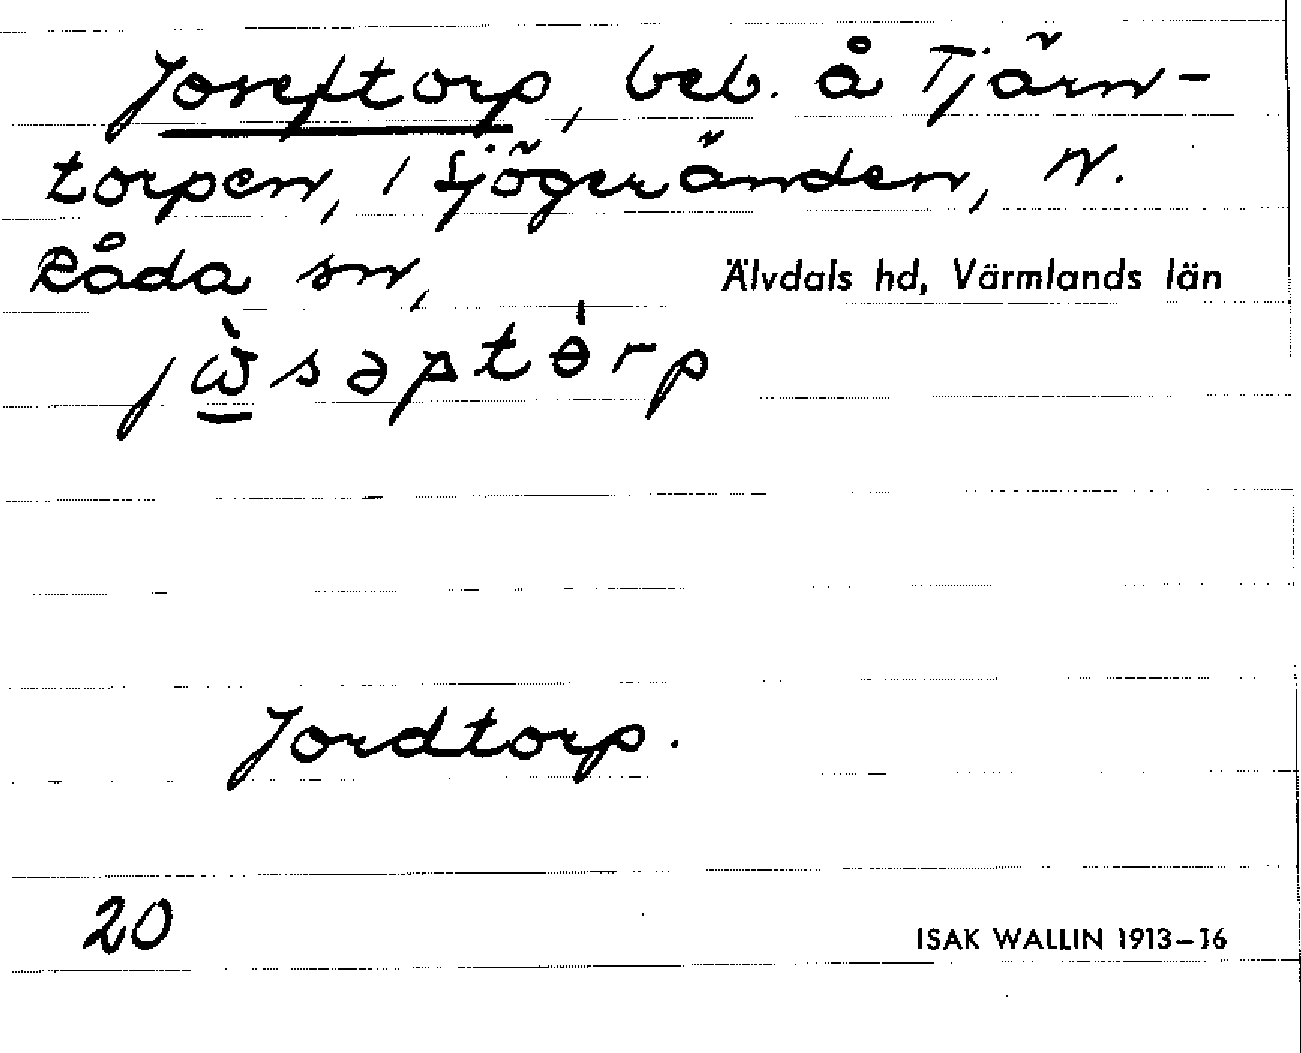 Joseftorp, beb. å Tjärn-
torpen, i Sjögeränden, N.
Råda sn, Älvdals hd, Värmlands län
jὼ̲səptɵ́rp
Jordtorp.
20 ISAK WALLIN 1913–16